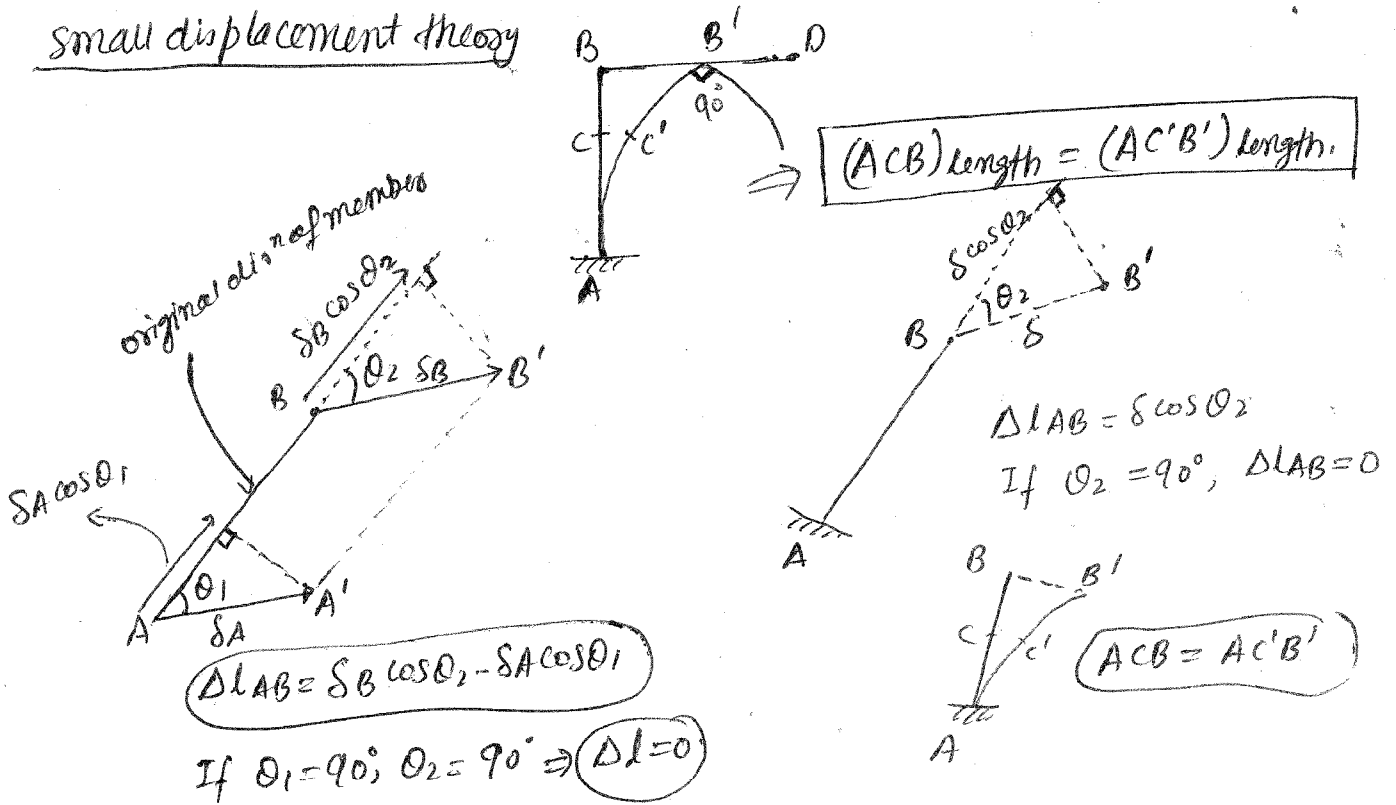 small displacement theory
B B' D
90°
C C'
(ACB) length = (AC'B') length.
A
original dirⁿ of member
δB cosθ2
B θ2 δB B'
δA cosθ1
θ1
A δA A'
ΔlAB = δB cosθ2 - δA cosθ1
If θ1 = 90°, θ2 = 90° ⇒ Δl = 0
δ cosθ2
B θ2 B'
δ
A
ΔlAB = δ cosθ2
If θ2 = 90°, ΔlAB = 0
B B'
C C'
ACB = AC'B'
A